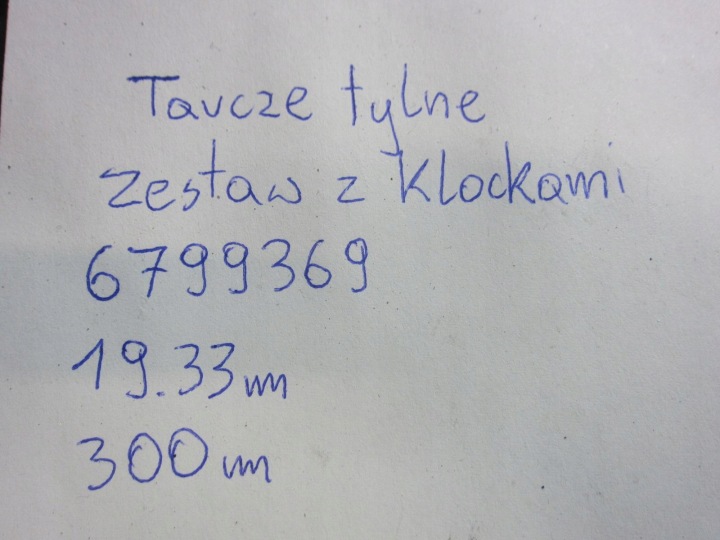 Tarcze tylne
zestaw z klockami
6799369
19.33mm
300mm